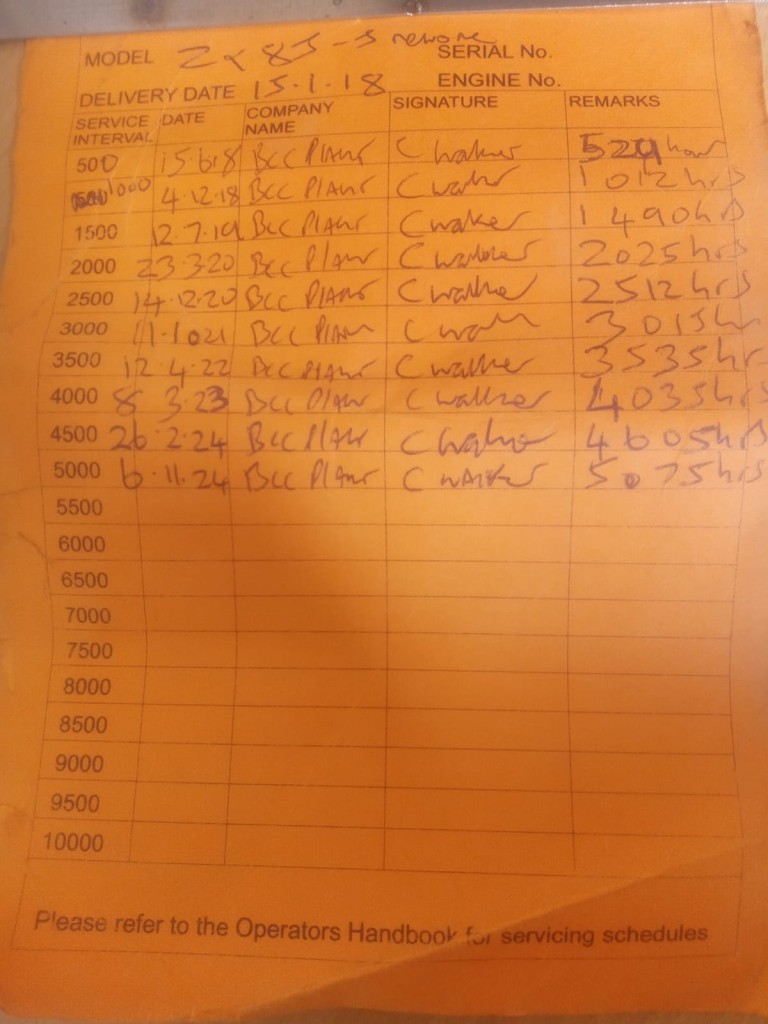 MODEL ZX 85-5 SERIAL No.
DELIVERY DATE 15.1.18 ENGINE No.
SERVICE INTERVAL DATE COMPANY NAME SIGNATURE REMARKS
500 15.6.8 BCC Plant C Walker 529 hour
1000 4.12.18 BCC Plant C Walker 1012hrs
1500 12.7.19 BCC Plant C Walker 1490hrs
2000 23.3.20 BCC Plant C Walker 2025hrs
2500 14.12.20 BCC Plant C Walker 2512hrs
3000 11.1021 BCC Plant C Walker 3015hr
3500 12.4.22 BCC Plant C Walker 3535hr
4000 8 3.23 BCC Plant C Walker 4035hrs
4500 26.2.24 BCC Plant C Walker 4605hrs
5000 6.11.24 BCC Plant C Walker 5075hrs
5500
6000
6500
7000
7500
8000
8500
9000
9500
10000
Please refer to the Operators Handbook for servicing schedules